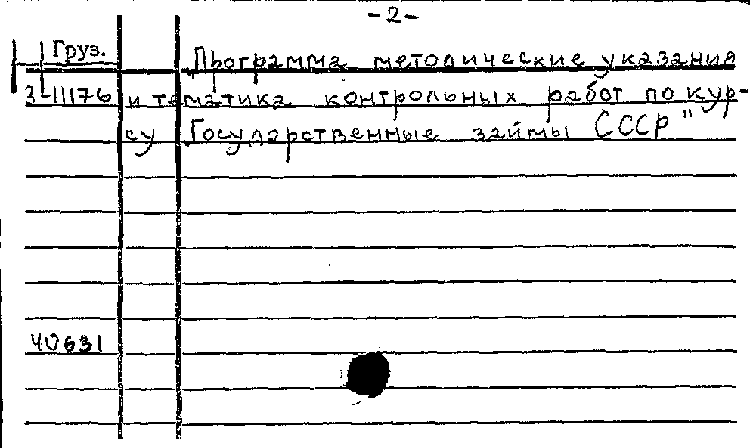 -2-
Груз.
Программа методические указания
3-11176 и тематика контрольных работ по кур-
су "Государственные займы СССР"
40631